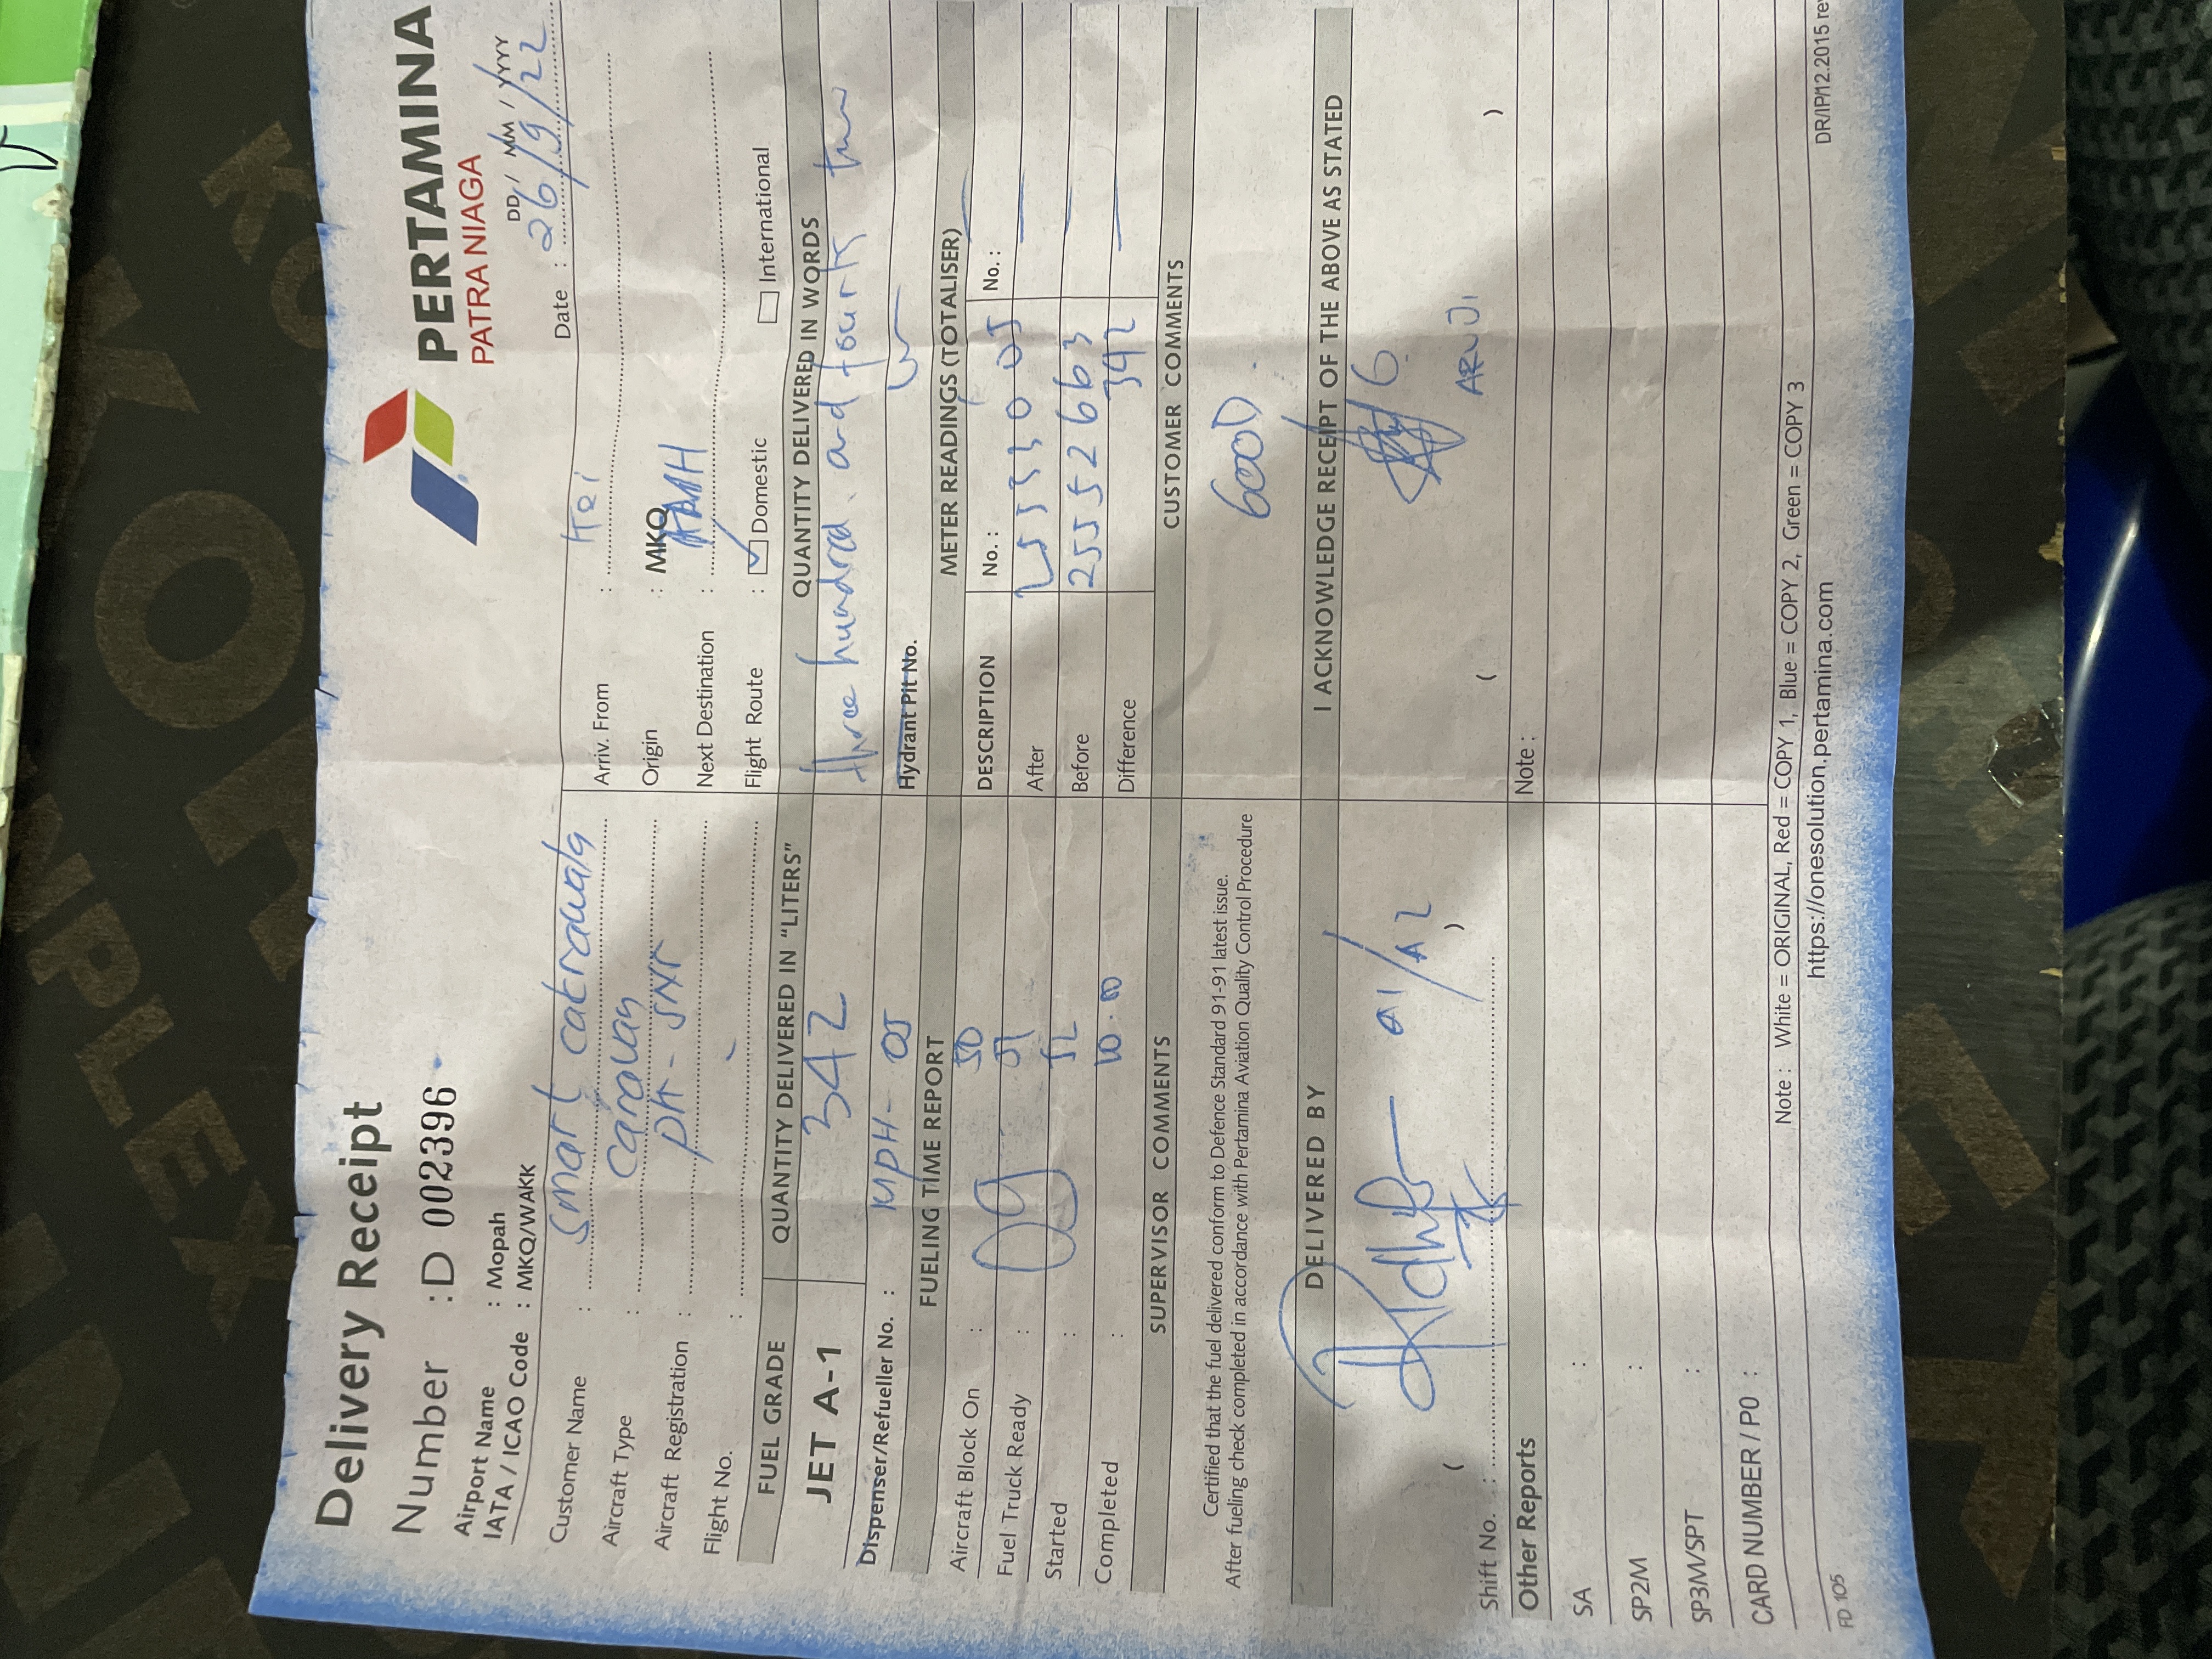 Delivery Receipt
PERTAMINA
PATRA NIAGA
Number : D 002396
Airport Name : Mopah
IATA / ICAO Code : MKQ/WAKK
DD / MM / YYYY
Date : 26/9/22
Customer Name : smart cakrawala
Aircraft Type : caravan
Aircraft Registration : PK-SNR
Flight No. : -
Arriv. From :
Origin : MKQ
Next Destination :
Flight Route : Domestic International
FUEL GRADE
QUANTITY DELIVERED IN "LITERS"
QUANTITY DELIVERED IN WORDS
JET A-1
342
three hundred and fourty two
Dispenser/Refueller No. : MPH- 05
Hydrant Pit No.
FUELING TIME REPORT
METER READINGS (TOTALISER)
DESCRIPTION No. : No. :
Aircraft Block On : 50
Fuel Truck Ready : 09 51
Started : 52
Completed : 10.00
After 2553005
Before 2552663
Difference 342
SUPERVISOR COMMENTS
CUSTOMER COMMENTS
Certified that the fuel delivered conform to Defence Standard 91-91 latest issue.
After fueling check completed in accordance with Pertamina Aviation Quality Control Procedure
GOOD
DELIVERED BY
I ACKNOWLEDGE RECEIPT OF THE ABOVE AS STATED
( )
( )
Shift No. :
Other Reports
Note :
SA :
SP2M :
SP3M/SPT :
CARD NUMBER / PO :
Note : White = ORIGINAL, Red = COPY 1, Blue = COPY 2, Green = COPY 3
https://onesolution.pertamina.com
FD 105
DR/IP/12.2015